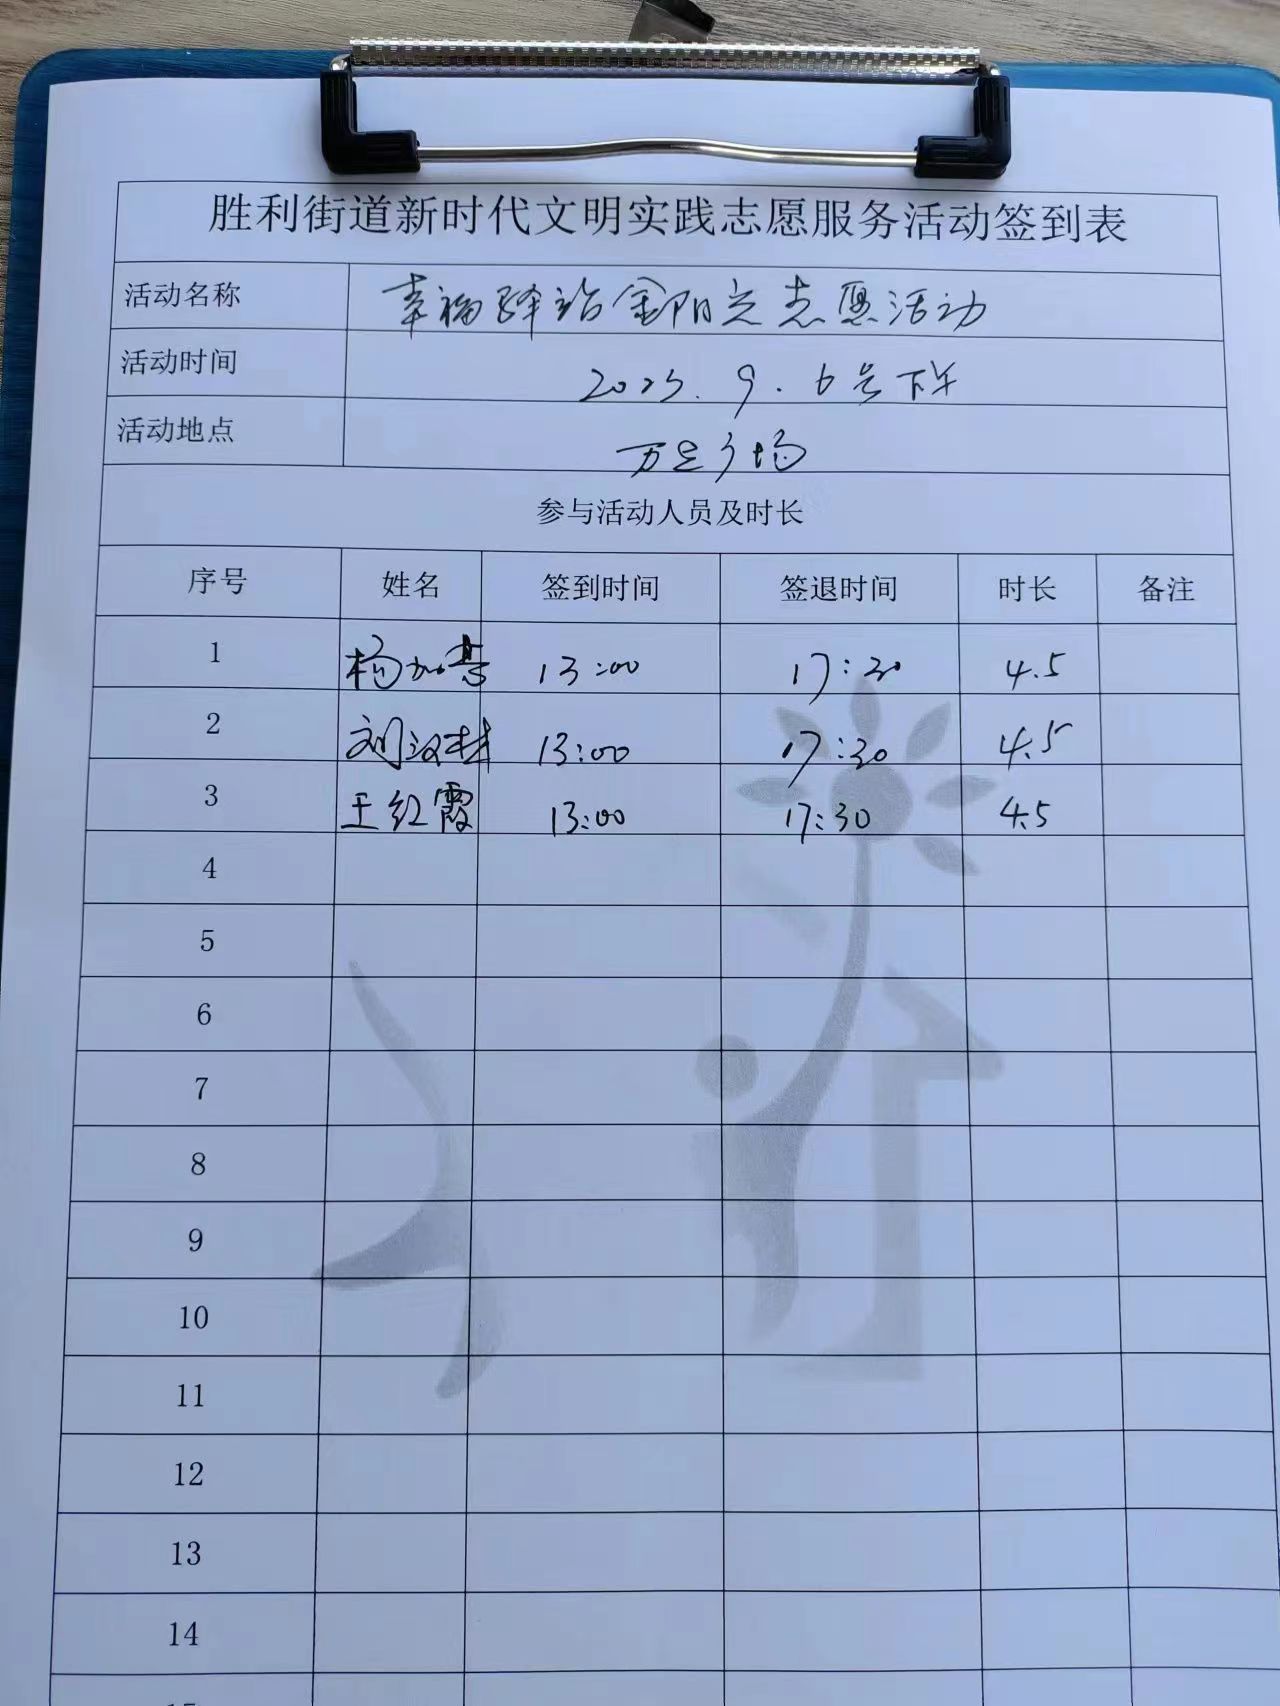 胜利街道新时代文明实践志愿服务活动签到表
活动名称 幸福驿站金阳光志愿活动
活动时间 2023.9.6号下午
活动地点 万达广场
参与活动人员及时长
序号 姓名 签到时间 签退时间 时长 备注
1 杨加 13:00 17:30 4.5
2 刘汉林 13:00 17:30 4.5
3 王红霞 13:00 17:30 4.5
4
5
6
7
8
9
10
11
12
13
14